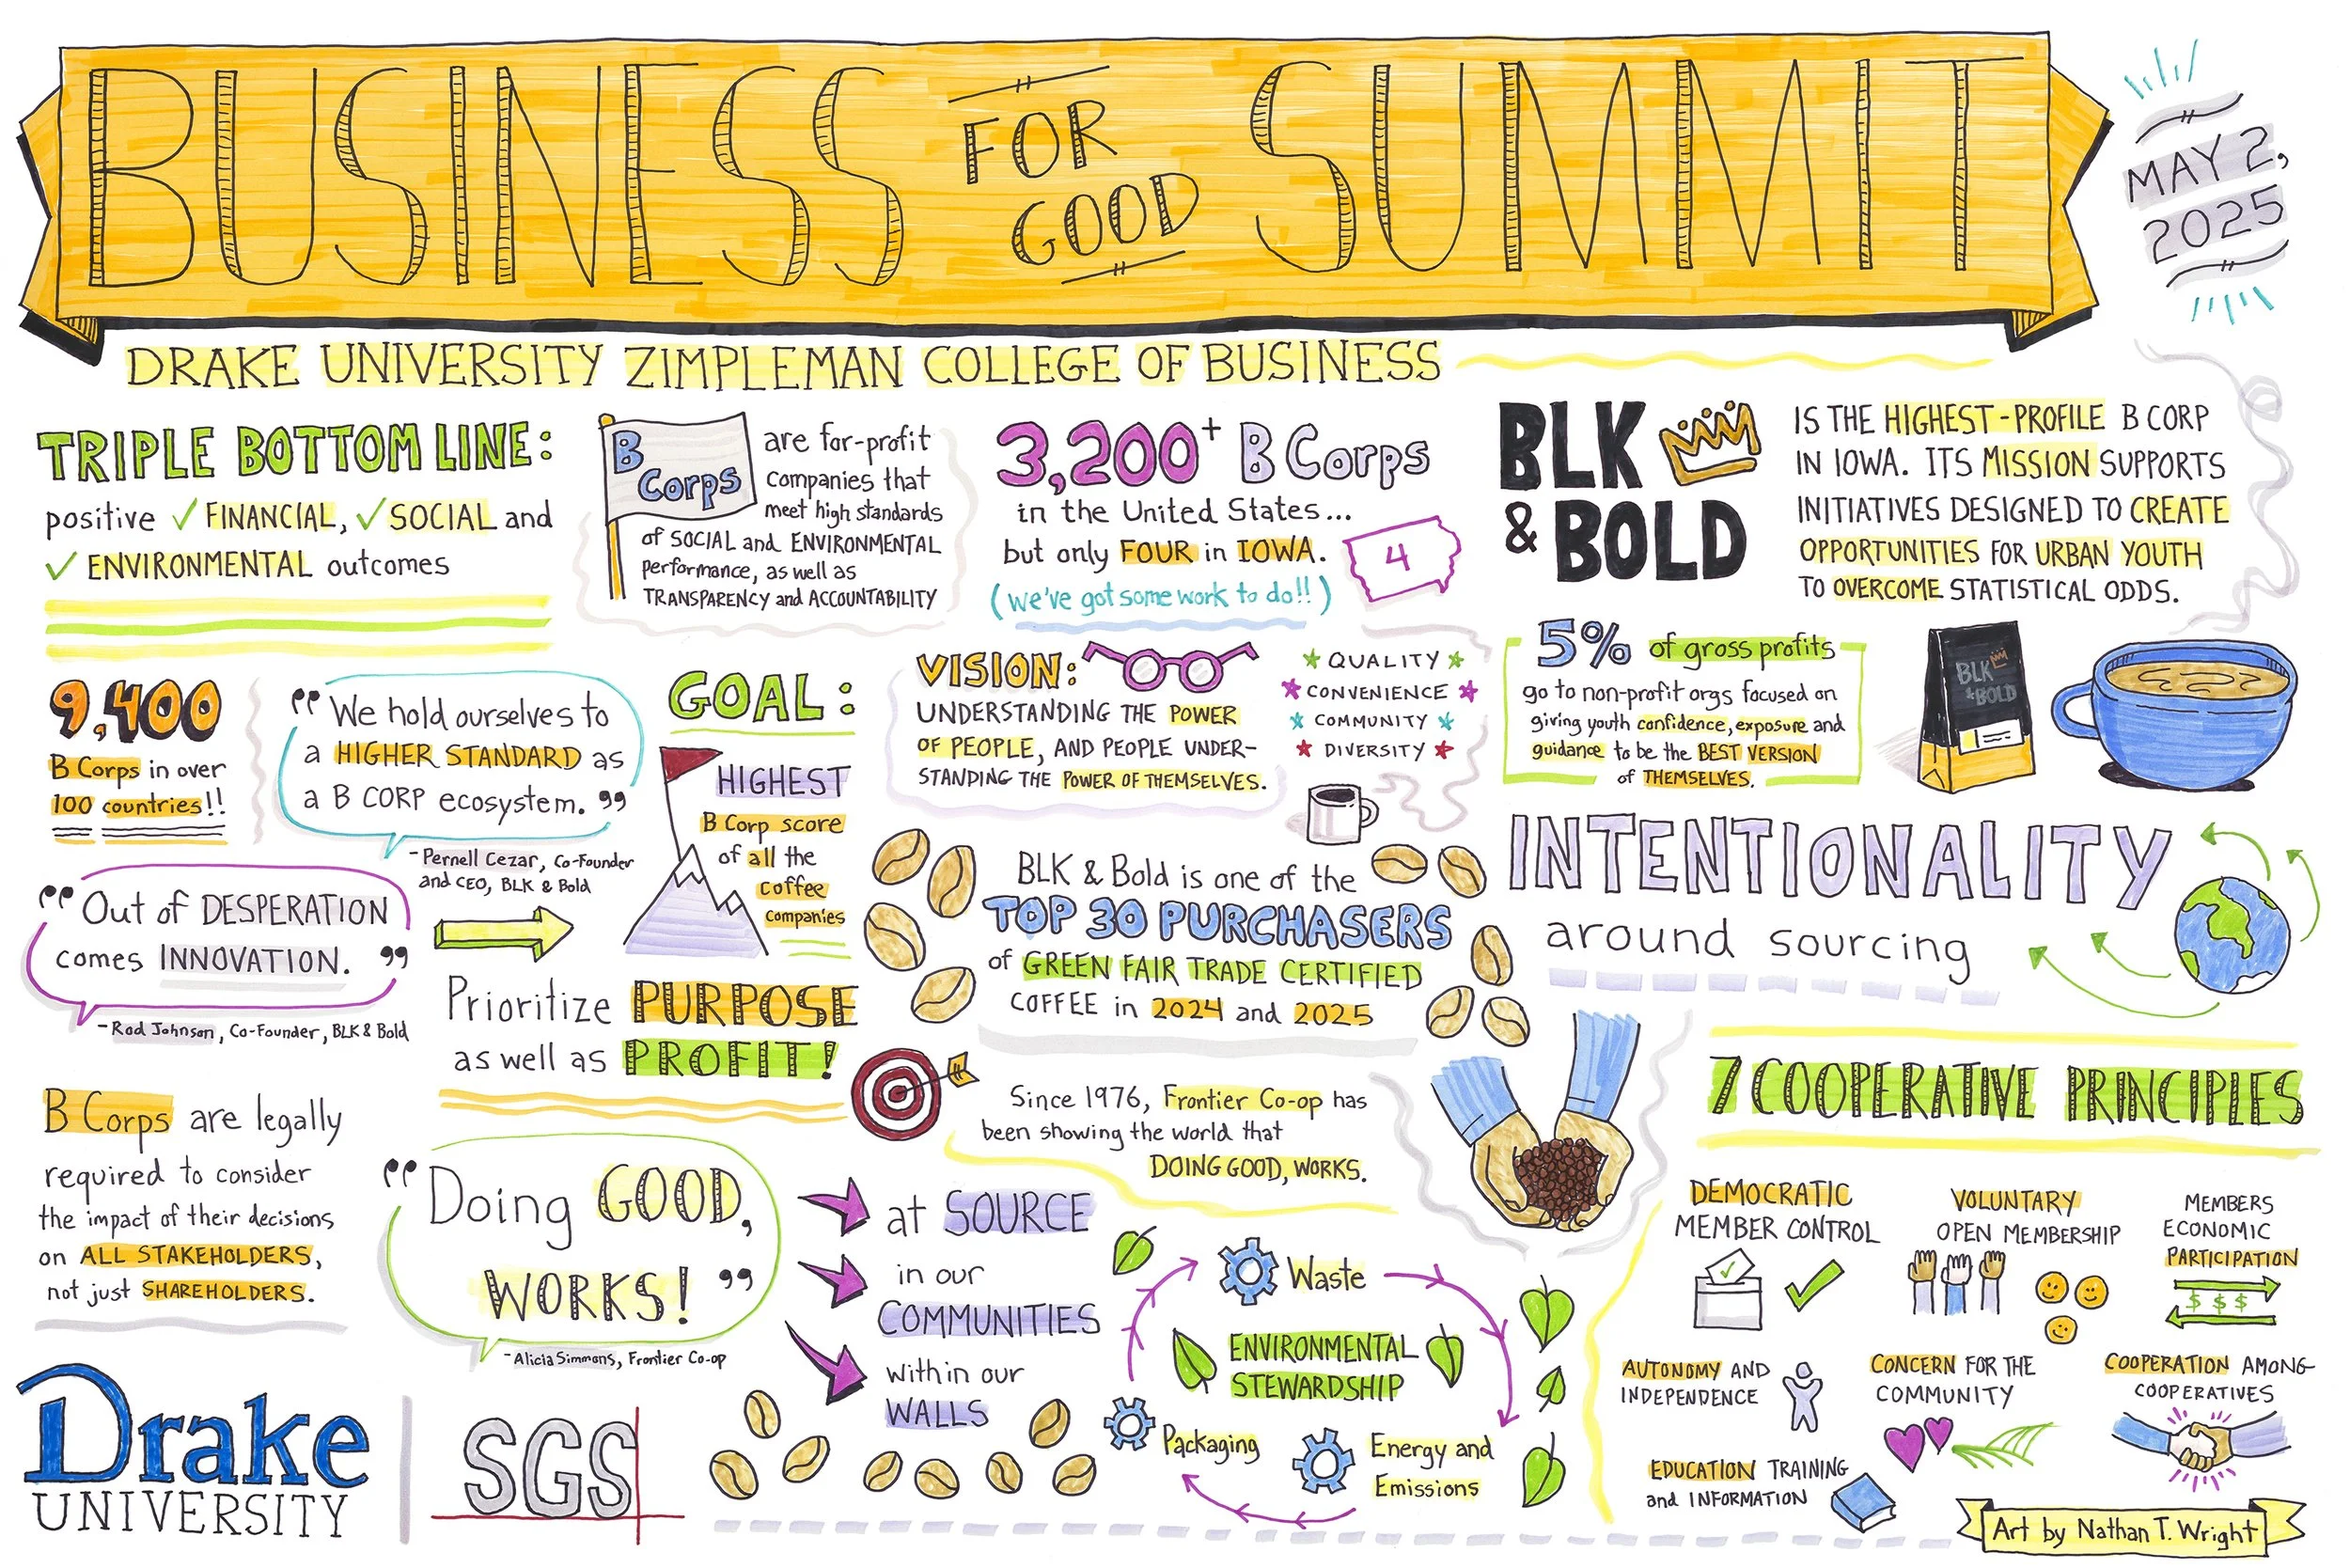 BUSINESS FOR GOOD SUMMIT
MAY 2,
2025
DRAKE UNIVERSITY ZIMPLEMAN COLLEGE OF BUSINESS
TRIPLE BOTTOM LINE:
positive ✓ FINANCIAL, ✓ SOCIAL and
✓ ENVIRONMENTAL outcomes
B Corps
are for-profit
companies that
meet high standards
of SOCIAL and ENVIRONMENTAL
performance, as well as
TRANSPARENCY and ACCOUNTABILITY
3,200+ B Corps
in the United States...
but only FOUR in IOWA.
4
(we've got some work to do!!)
BLK
& BOLD
IS THE HIGHEST-PROFILE B CORP
IN IOWA. ITS MISSION SUPPORTS
INITIATIVES DESIGNED TO CREATE
OPPORTUNITIES FOR URBAN YOUTH
TO OVERCOME STATISTICAL ODDS.
9,400
B Corps in over
100 countries!!
"We hold ourselves to
a HIGHER STANDARD as
a B CORP ecosystem."
- Pernell Cezar, Co-Founder
and CEO, BLK & Bold
GOAL:
HIGHEST
B Corp score
of all the
coffee
companies
VISION:
UNDERSTANDING THE POWER
OF PEOPLE, AND PEOPLE UNDER-
STANDING THE POWER OF THEMSELVES.
QUALITY
CONVENIENCE
COMMUNITY
DIVERSITY
5% of gross profits
go to non-profit orgs focused on
giving youth confidence, exposure and
guidance to be the BEST VERSION
of THEMSELVES.
BLK
& BOLD
"Out of DESPERATION
comes INNOVATION."
- Rod Johnson, Co-Founder, BLK & Bold
Prioritize PURPOSE
as well as PROFIT!
BLK & Bold is one of the
TOP 30 PURCHASERS
of GREEN FAIR TRADE CERTIFIED
COFFEE in 2024 and 2025
INTENTIONALITY
around sourcing
B Corps are legally
required to consider
the impact of their decisions
on ALL STAKEHOLDERS,
not just SHAREHOLDERS.
"Doing GOOD,
WORKS!"
- Alicia Simmons, Frontier Co-op
at SOURCE
in our
COMMUNITIES
within our
WALLS
Since 1976, Frontier Co-op has
been showing the world that
DOING GOOD, WORKS.
Waste
ENVIRONMENTAL
STEWARDSHIP
Packaging
Energy and
Emissions
7 COOPERATIVE PRINCIPLES
DEMOCRATIC
MEMBER CONTROL
VOLUNTARY
OPEN MEMBERSHIP
MEMBERS
ECONOMIC
PARTICIPATION
$ $ $
AUTONOMY AND
INDEPENDENCE
CONCERN FOR THE
COMMUNITY
COOPERATION AMONG
COOPERATIVES
EDUCATION TRAINING
and INFORMATION
Drake
UNIVERSITY
SGS
Art by Nathan T. Wright